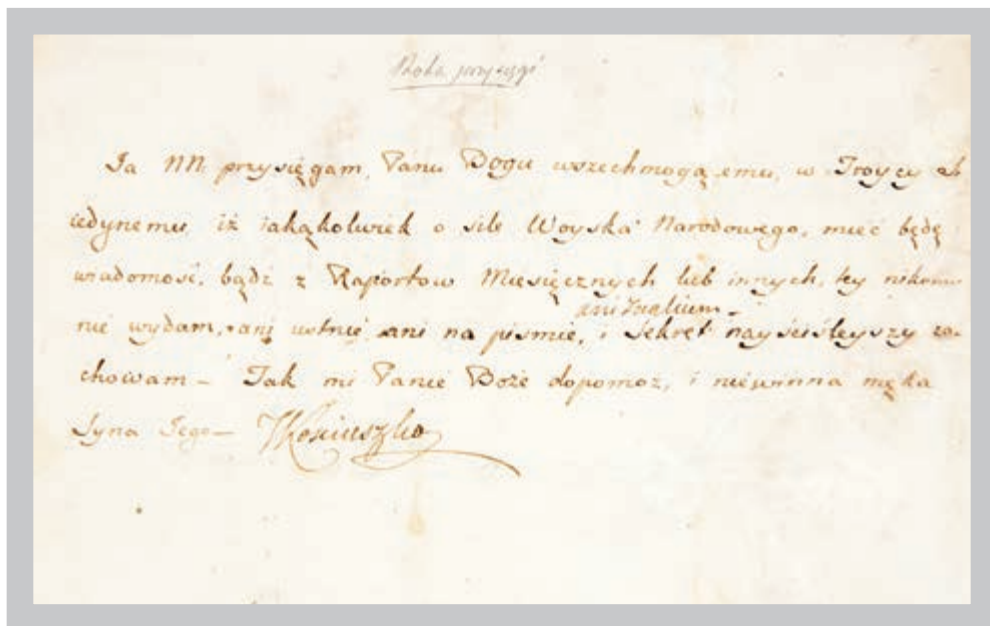 Rota przysięgi
Ja NN. przysięgam, Panu Bogu wszechmogącemu, w Troycy
iedynemu, iż iakąkolwiek o sile Woyska Narodowego, mieć będę
wiadomość, bądź z Raportow Miesięcznych lub innych, tey nikomu
ani znakiem –
nie wydam, ani ustnie ani na pismie, i Sekret nayściśleyszy za-
chowam – Tak mi Panie Boże dopomoż, i niewinna męka
Syna Jego – TKosciuszko